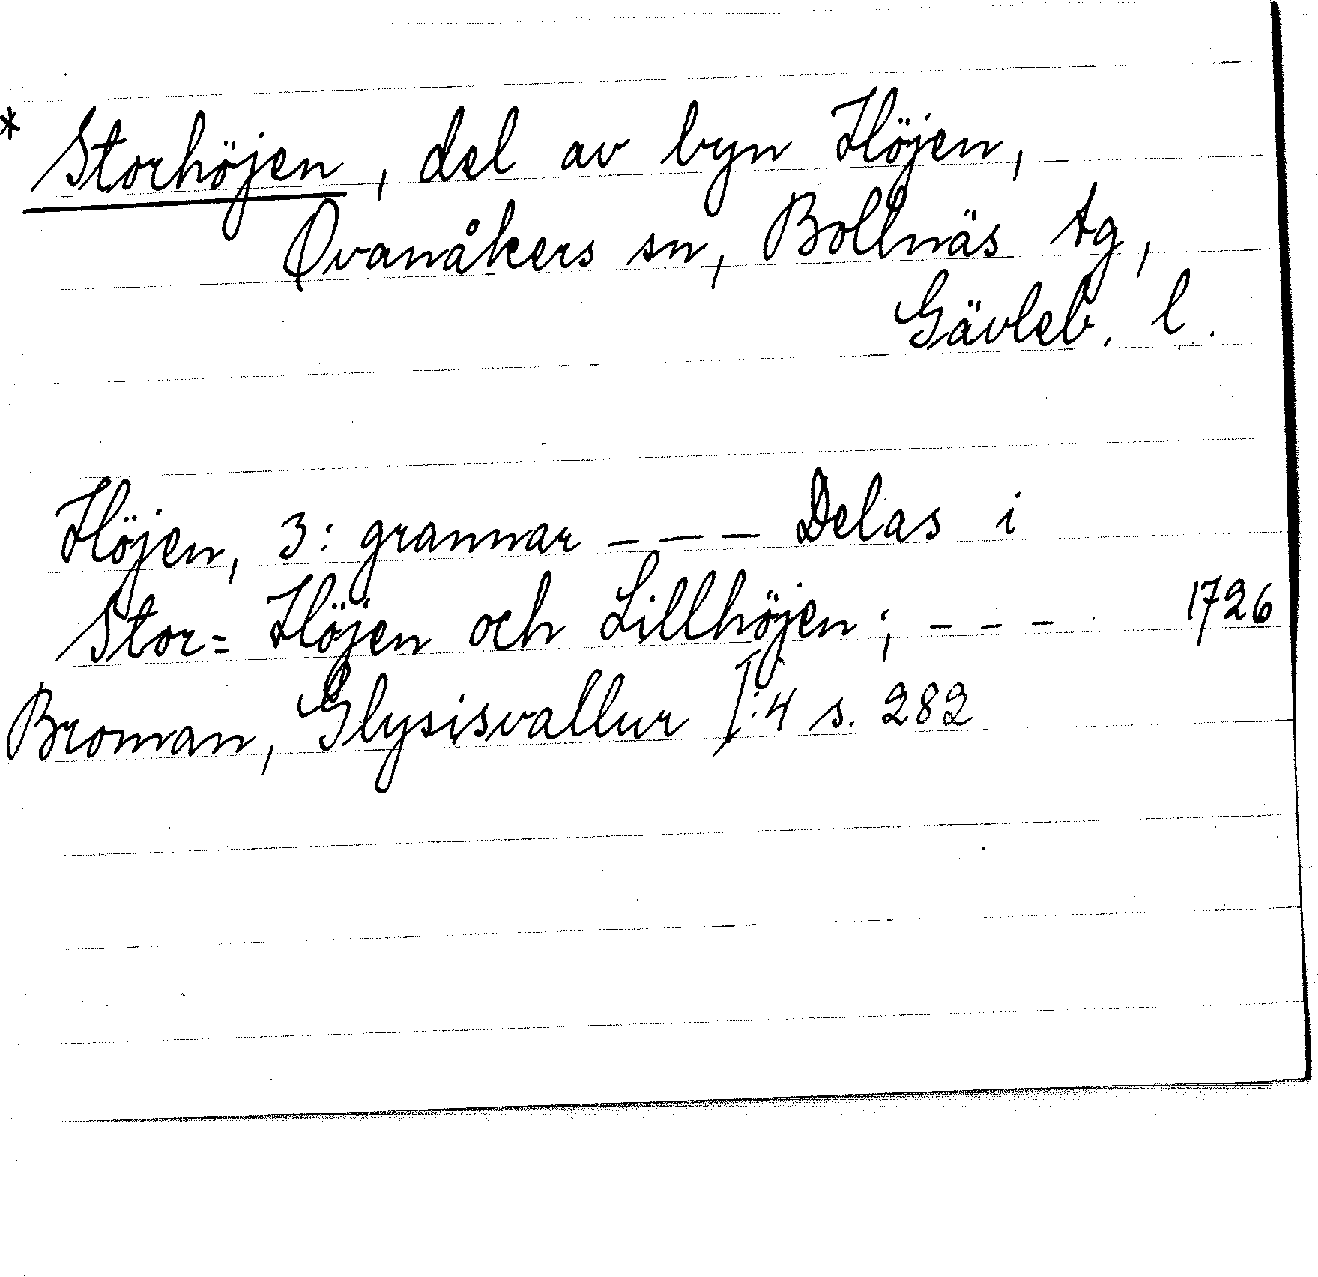 * Storhöjen, del av byn Höjen,
Ovanåkers sn, Bollnäs tg,
Gävleb. l.
Höjen, 3: grannar - - - Delas i
Stor= Höjen och Lillhöjen; - - - 1726
Broman, Glysisvallur I:4 s. 282